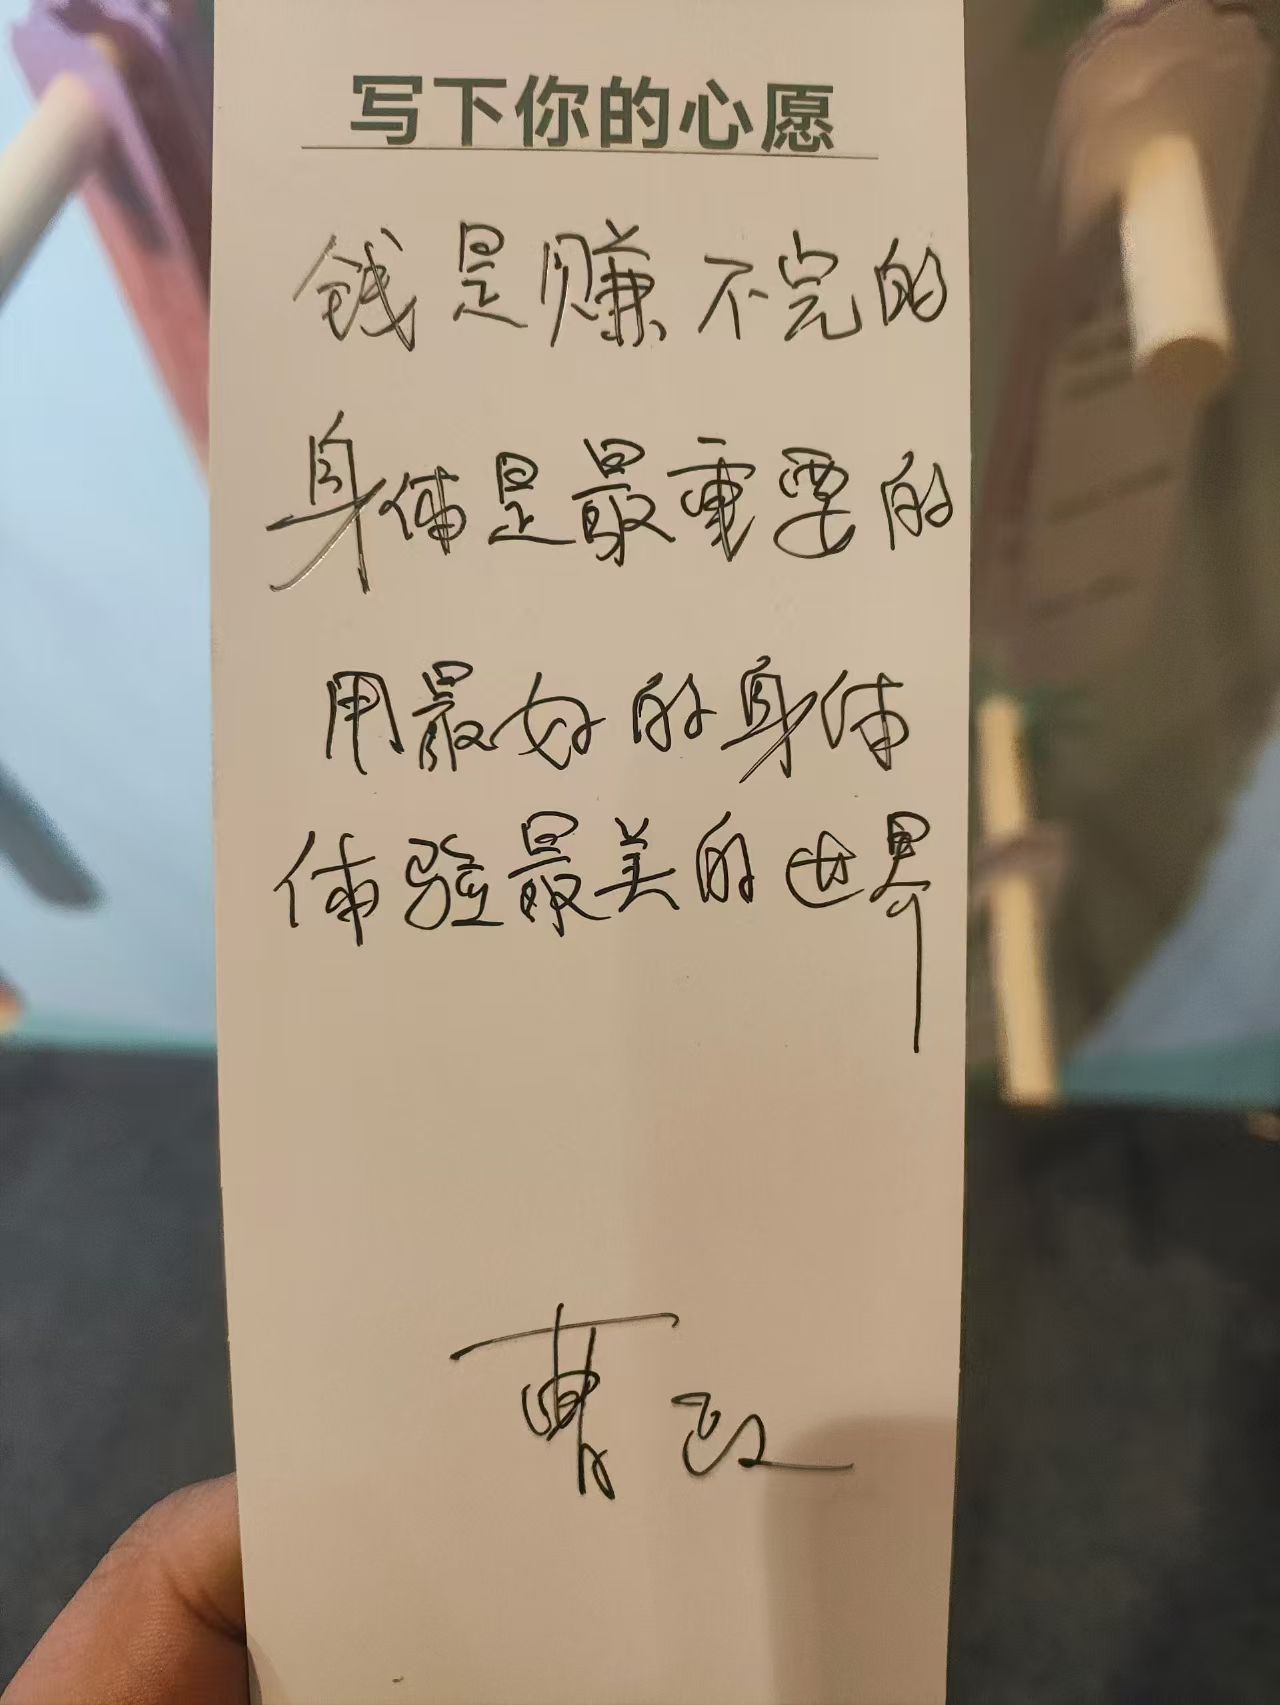 写下你的心愿
钱是赚不完的
身体是最重要的
用最好的身体
体验最美的世界
曹政